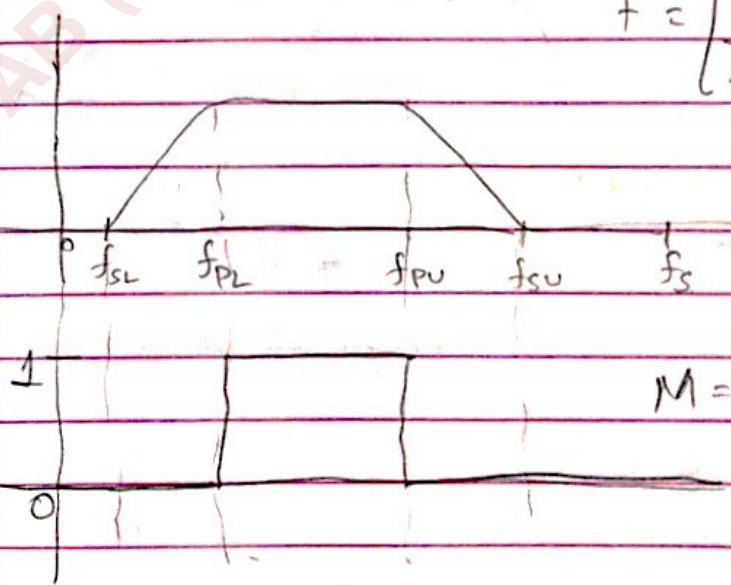 f = [
0 fSL fPL fPU fSU fS
1
M =
0